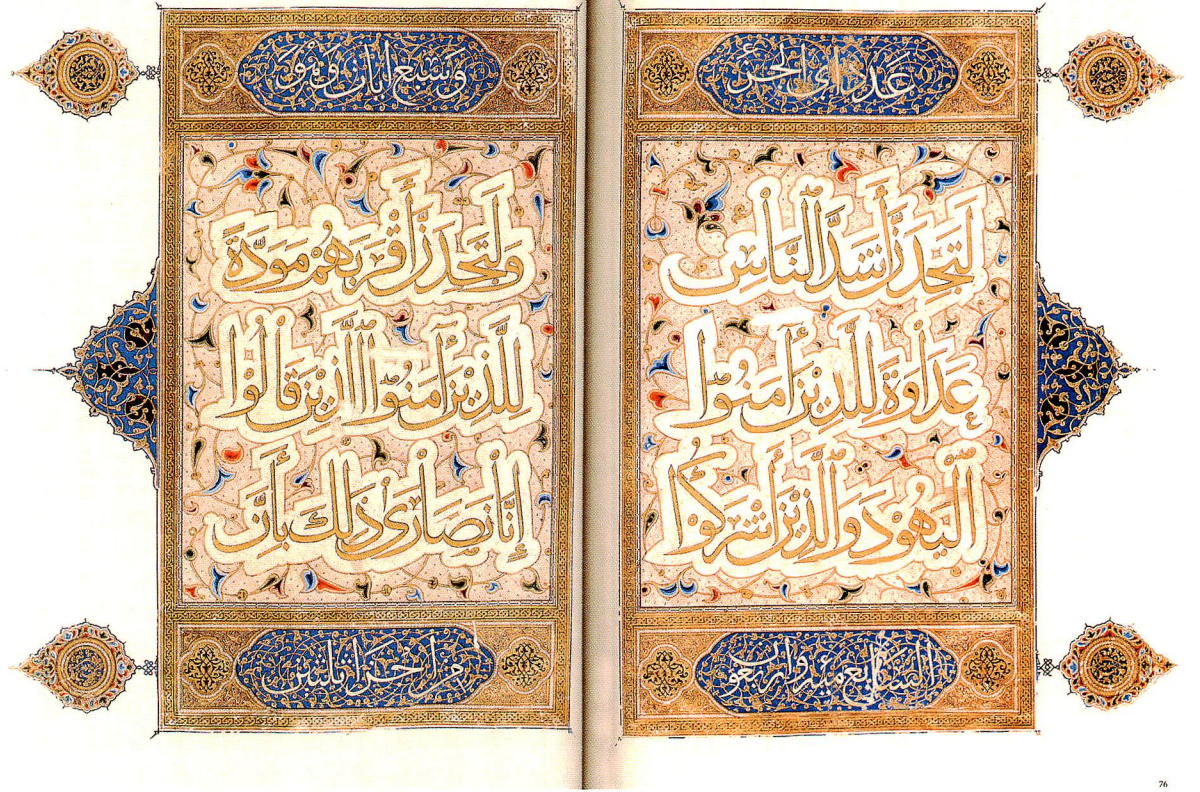 عدد اى الجزء
لَتَجِدَنَّ أَشَدَّ النَّاسِ
عَدَاوَةً لِلَّذِينَ أَمَنُوا
الْيَهُودَ وَالَّذِينَ أَشْرَكُوا
السابع واربعون
وسبع ايات وهو
وَلَتَجِدَنَّ أَقْرَبَهُمْ مَوَدَّةً
لِلَّذِينَ أَمَنُوا الَّذِينَ قَالُوا
إِنَّا نَصَارَىٰ ذَلِكَ بِأَنَّ
من اجزا ثلثين
76